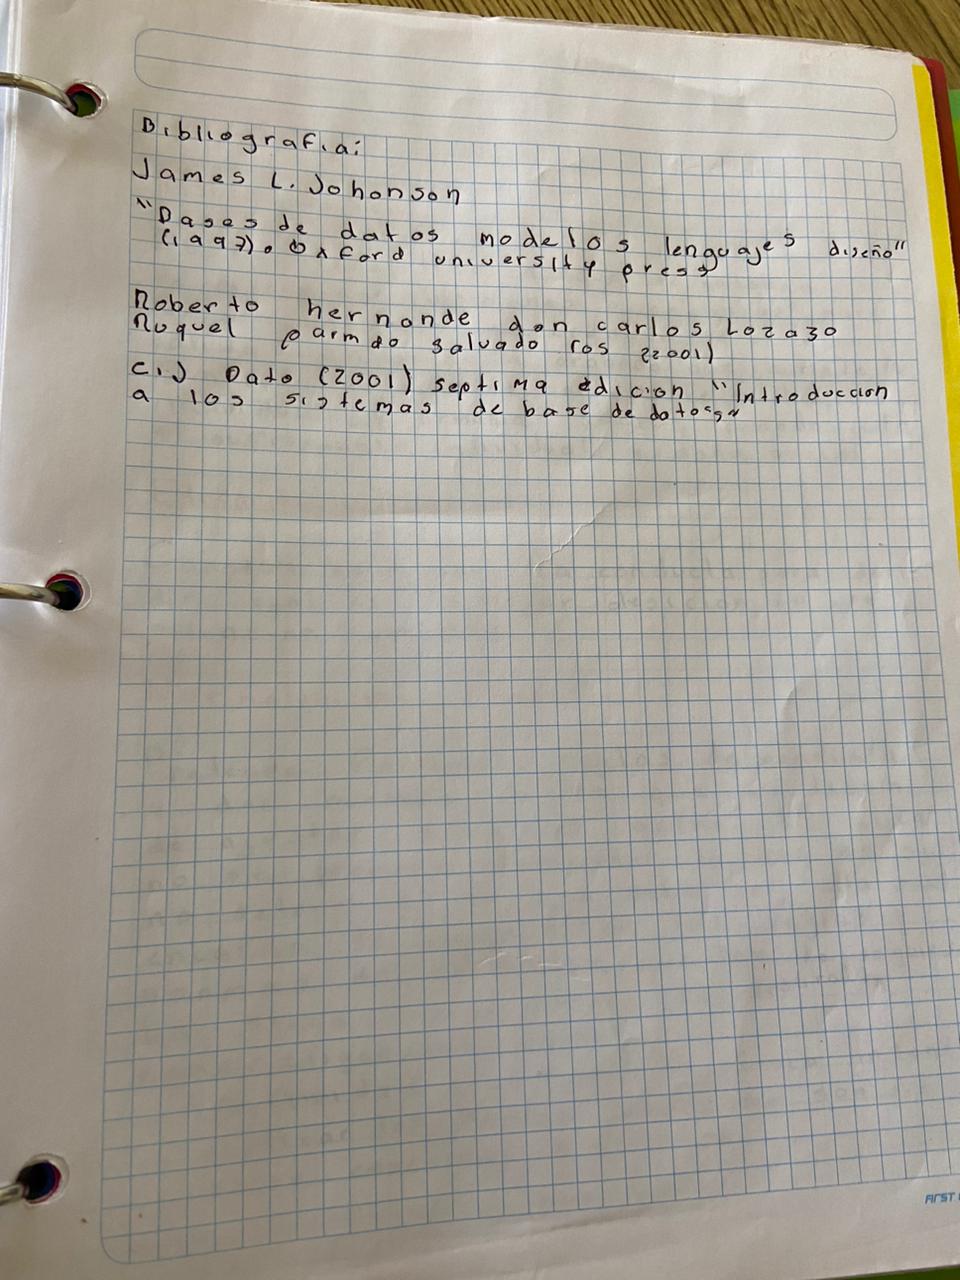 Bibliografia:
James L. Johonson
"Bases de datos modelos lenguajes diseño"
(1997). Oxford university press
Roberto hernonde don carlos Lozazo
Ruquel parmdo salvado ros (2001)
C.J Dato (2001) septima edicion "Introduccion
a los sistemas de base de datos"
FIrST